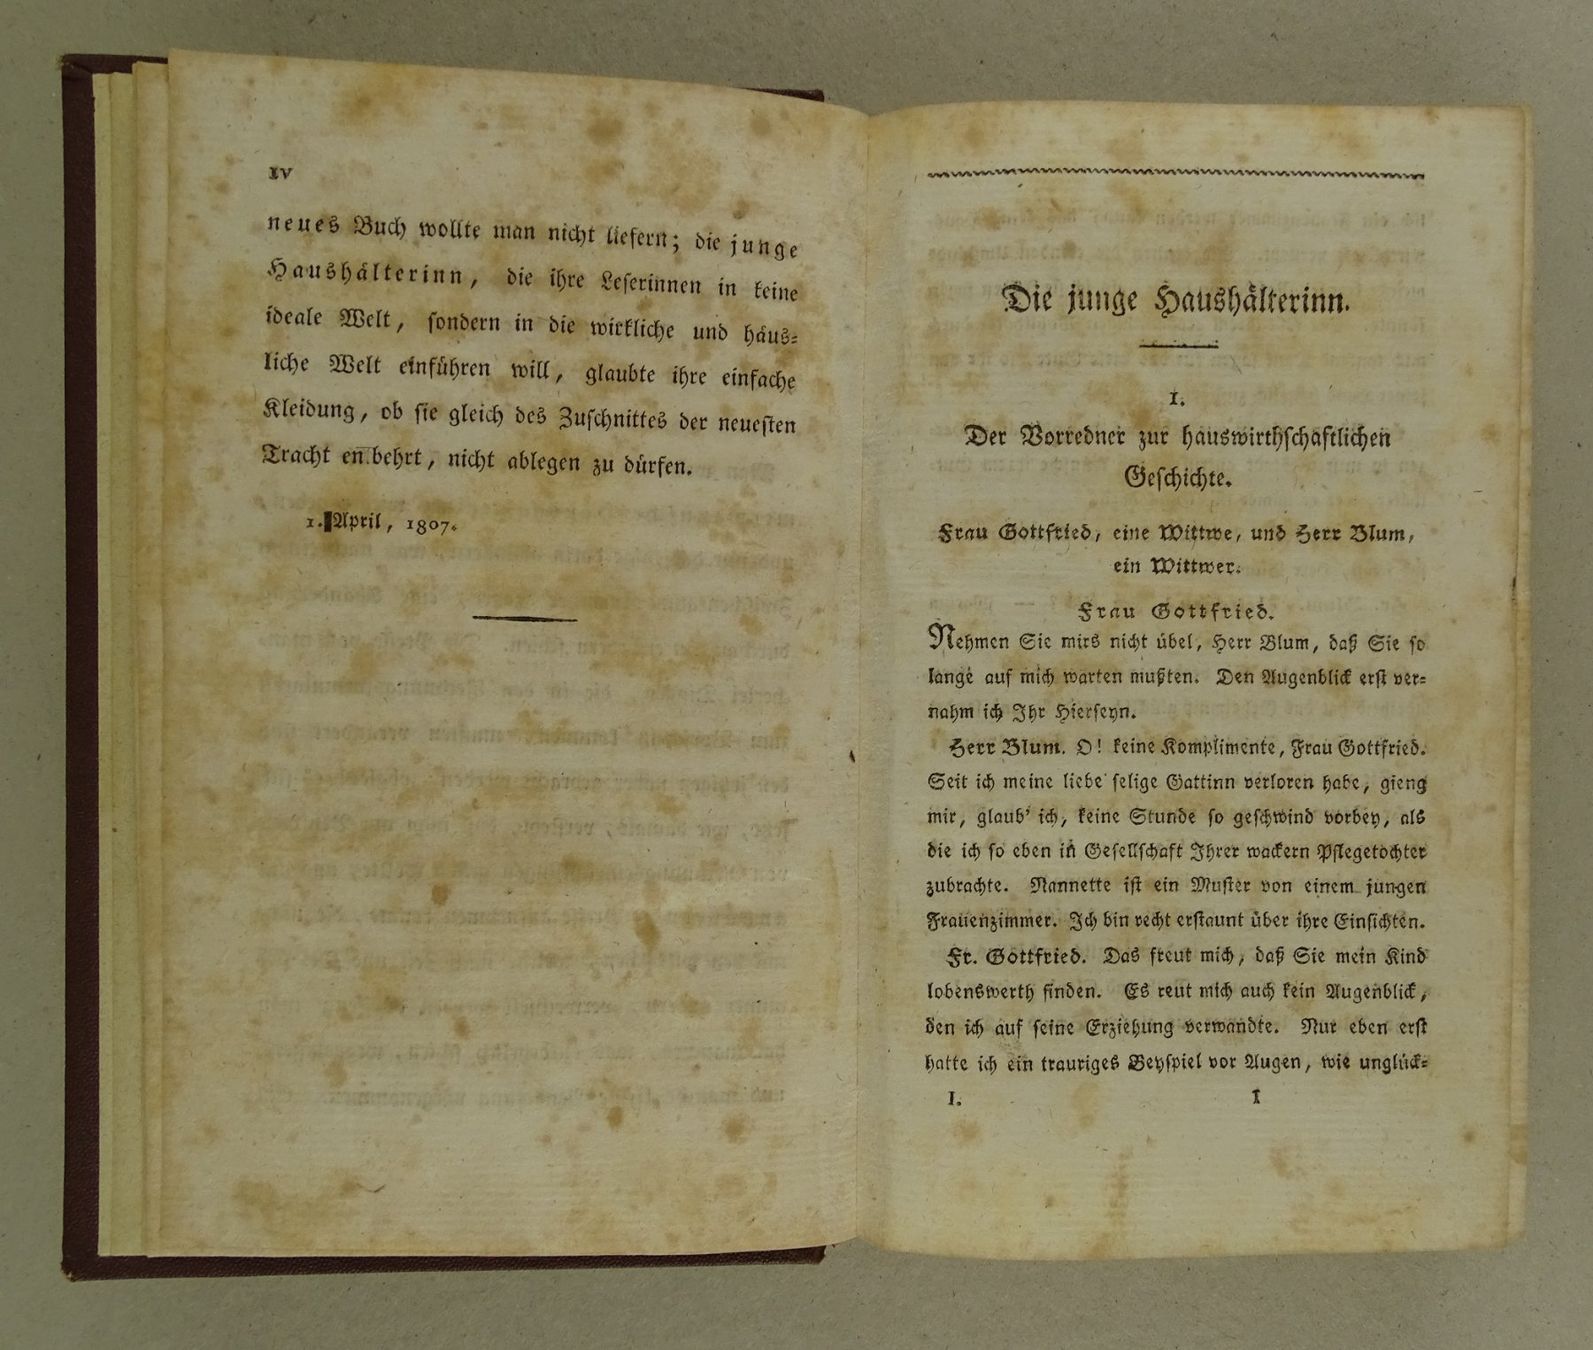 IV
neues Buch wollte man nicht liefern; die junge
Haushälterinn, die ihre Leserinnen in keine
ideale Welt, sondern in die wirkliche und häus=
liche Welt einführen will, glaubte ihre einfache
Kleidung, ob sie gleich des Zuschnittes der neuesten
Tracht entbehrt, nicht ablegen zu dürfen.
1. April, 1807.
Die junge Haushälterinn.
I.
Der Vorredner zur hauswirthschaftlichen
Geschichte.
Frau Gottfried, eine Wittwe, und Herr Blum,
ein Wittwer.
Frau Gottfried.
Nehmen Sie mirs nicht übel, Herr Blum, daß Sie so
lange auf mich warten mußten. Den Augenblick erst ver=
nahm ich Ihr Hierseyn.
Herr Blum. O! keine Komplimente, Frau Gottfried.
Seit ich meine liebe selige Gattinn verloren habe, gieng
mir, glaub' ich, keine Stunde so geschwind vorbey, als
die ich so eben in Gesellschaft Ihrer wackern Pflegetochter
zubrachte. Nannette ist ein Muster von einem jungen
Frauenzimmer. Ich bin recht erstaunt über ihre Einsichten.
Fr. Gottfried. Das freut mich, daß Sie mein Kind
lobenswerth finden. Es reut mich auch kein Augenblick,
den ich auf seine Erziehung verwandte. Nur eben erst
hatte ich ein trauriges Beyspiel vor Augen, wie unglück=
I. 1